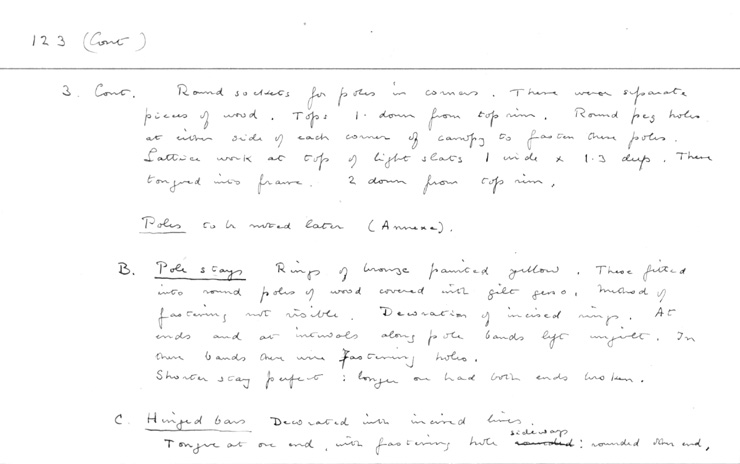 123 (Cont)
3. Cont. Round sockets for poles in corners. These were separate
pieces of wood. Tops 1. down from top rim. Round peg holes
at either side of each corner of canopy to fasten these poles.
Lattice work at top of light slats 1 wide x 1.3 deep. These
tongued into frame. 2 down from top rim.
Poles to be noted later (Annexe).
B. Pole stays Rings of bronze painted yellow. These fitted
into round poles of wood covered with gilt gesso. Method of
fastening not visible. Decoration of incised rings. At
ends and at intervals along pole bands left ungilt. In
these bands there were fastening holes.
Shorter stay perfect : longer one had both ends broken.
C. Hinged bars Decorated with incised lines.
sideways
Tongue at one end, with fastening hole rounded : rounded other end,